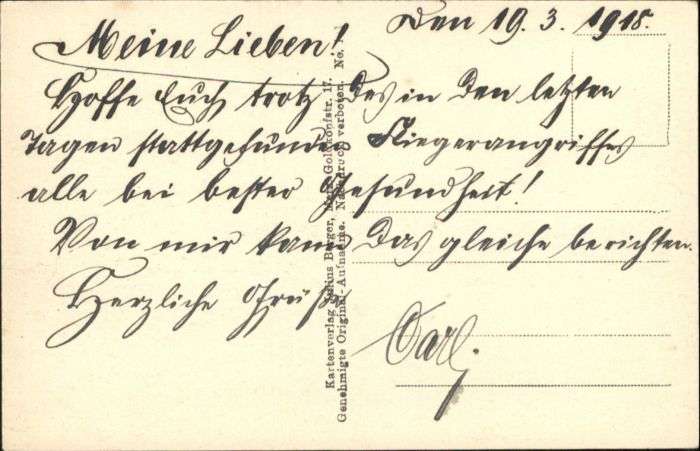 Den 19. 3. 1918.
Meine Lieben!
Hoffe Euch trotz des in den letzten
Tagen stattgefunden Fliegerangriffes
alle bei bester Gesundheit!
Von mir kann das gleiche berichten.
Herzliche Grüße
Carl.
Kartenverlag Julius Berger, Goldkopfstr. 17.
Genehmigte Original-Aufnahme. Nachdruck verboten. No.